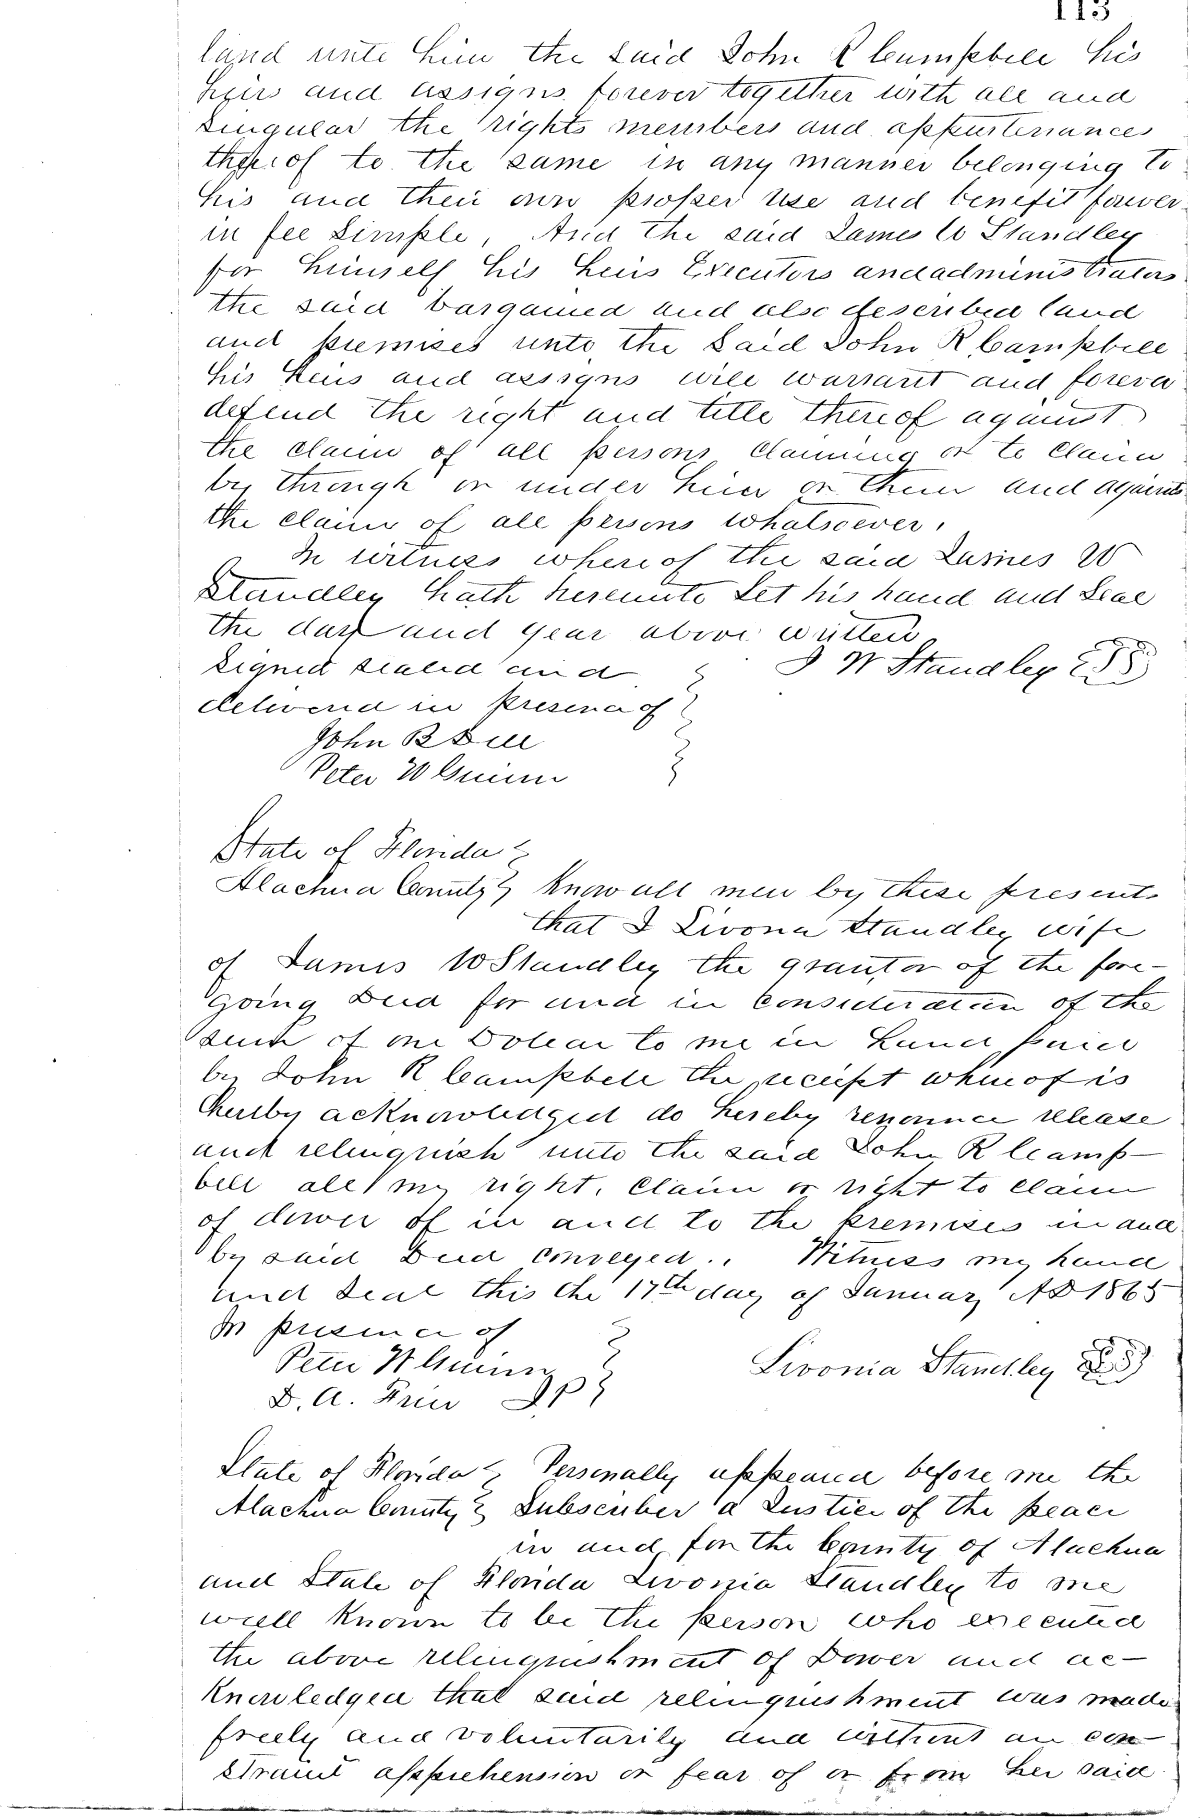 113
land unto him the said John R Campbell his
heirs and assigns forever together with all and
singular the rights members and appurtenances
thereof to the same in any manner belonging to
his and their own proper use and benefit forever
in fee Simple, And the said James W Standley
for himself his heirs Executors and administrators
the said bargained and also described land
and premises unto the Said John R Campbell
his heirs and assigns will warrant and forever
defend the right and title thereof against
the claim of all persons claiming or to claim
by through or under him or them and against
the claims of all persons whatsoever.
In witness whereof the said James W
Standley hath hereunto Set his hand and Seal
the day and year above written
Signed sealed and J W Standley
delivered in presence of
John B Dell
Peter W Guinn
State of Florida
Alachua County Know all men by these presents
that I Livona Standley wife
of James W Standley the grantor of the fore-
going Deed for and in consideration of the
sum of one Dollar to me in hand paid
by John R Campbell the receipt whereof is
hereby acknowledged do hereby renounce release
and relinquish unto the said John R Camp-
bell all my right, claim or right to claim
of dower of in and to the premises in and
by said Deed conveyed.. Witness my hand
and Seal this the 17th day of January AD 1865
In presence of
Peter W Guinn Livonia Standley
D. A. JP
State of Florida Personally appeared before me the
Alachua County Subscriber a Justice of the peace
in and for the County of Alachua
and State of Florida Livonia Standley to me
well known to be the person who executed
the above relinquishment of Dower and ac-
knowledged that said relinquishment was made
freely and voluntarily and without an con-
straint apprehension or fear of or from her said